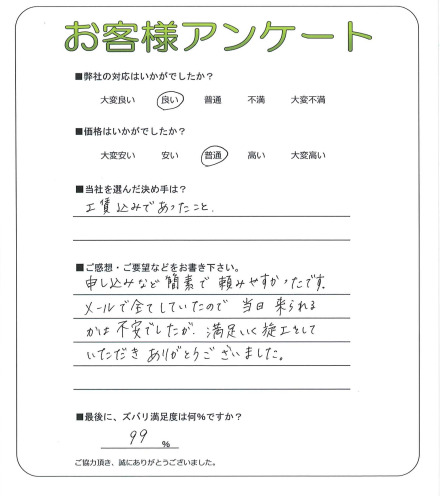 お客様アンケート
■弊社の対応はいかがでしたか？
大変良い 良い 普通 不満 大変不満
■価格はいかがでしたか？
大変安い 安い 普通 高い 大変高い
■当社を選んだ決め手は？
工賃込みであったこと.
■ご感想・ご要望などをお書き下さい。
申し込みなど簡素で頼みやすかったです.
メールで全てしていたので 当日 来られる
かは 不安でしたが、満足いく施工をして
いただき ありがとうございました。
■最後に、ズバリ満足度は何%ですか？
99 %
ご協力頂き、誠にありがとうございました。